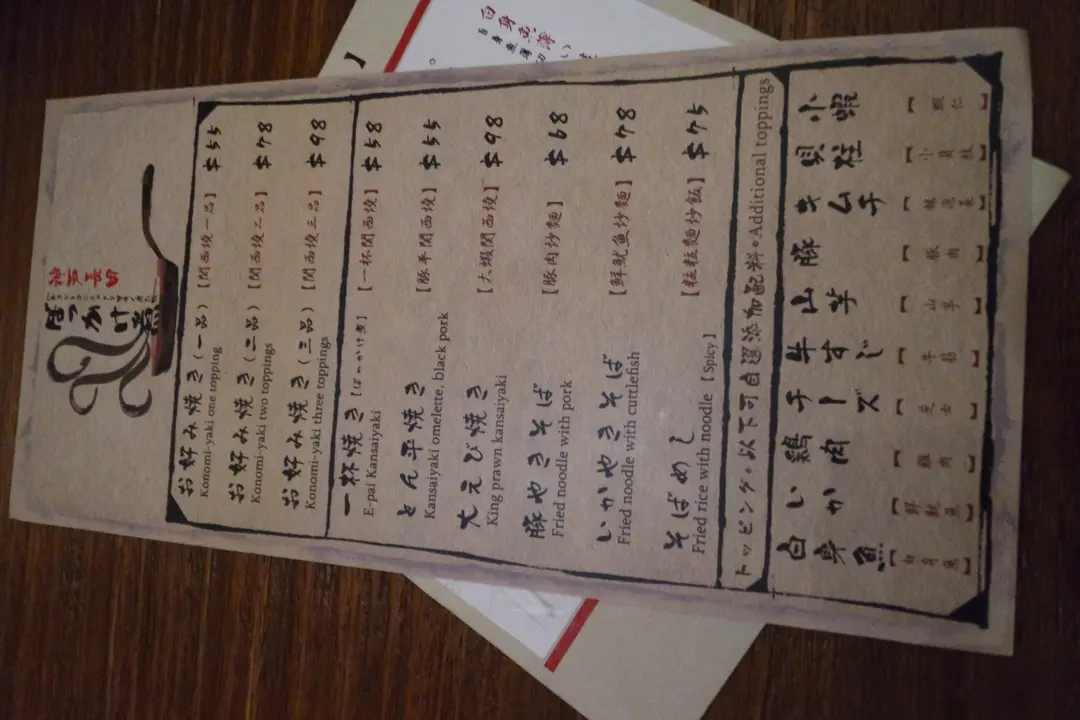 ぼっかけ煮
お好み焼き(一品) 【関西燒一品】 $55
Konomi-yaki one topping
お好み焼き(二品) 【関西燒二品】 $78
Konomi-yaki two toppings
お好み焼き(三品) 【関西燒三品】 $98
Konomi-yaki three toppings
一杯焼き【ぼっかけ煮】 【一杯関西燒】 $58
E-pai Kansaiyaki
とん平焼き 【豚平関西燒】 $55
Kansaiyaki omelette, black pork
大えび焼き 【大蝦関西燒】 $98
King prawn kansaiyaki
豚やきそば 【豚肉炒麵】 $68
Fried noodle with pork
いかやきそば 【鮮魷魚炒麵】 $78
Fried noodle with cuttlefish
そばめし 【粒粒麵炒飯】 $75
Fried rice with noodle【Spicy】
トッピング・以下可自選添加配料・Additional toppings
白身魚 【白身魚】
いか 【鮮魷魚】
鶏肉 【雞肉】
チーズ 【芝士】
牛すじ 【牛筋】
山芋 【山芋】
豚 【豚肉】
キムチ 【辣泡菜】
貝柱 【小貝柱】
小蝦 【蝦仁】
白身魚薄